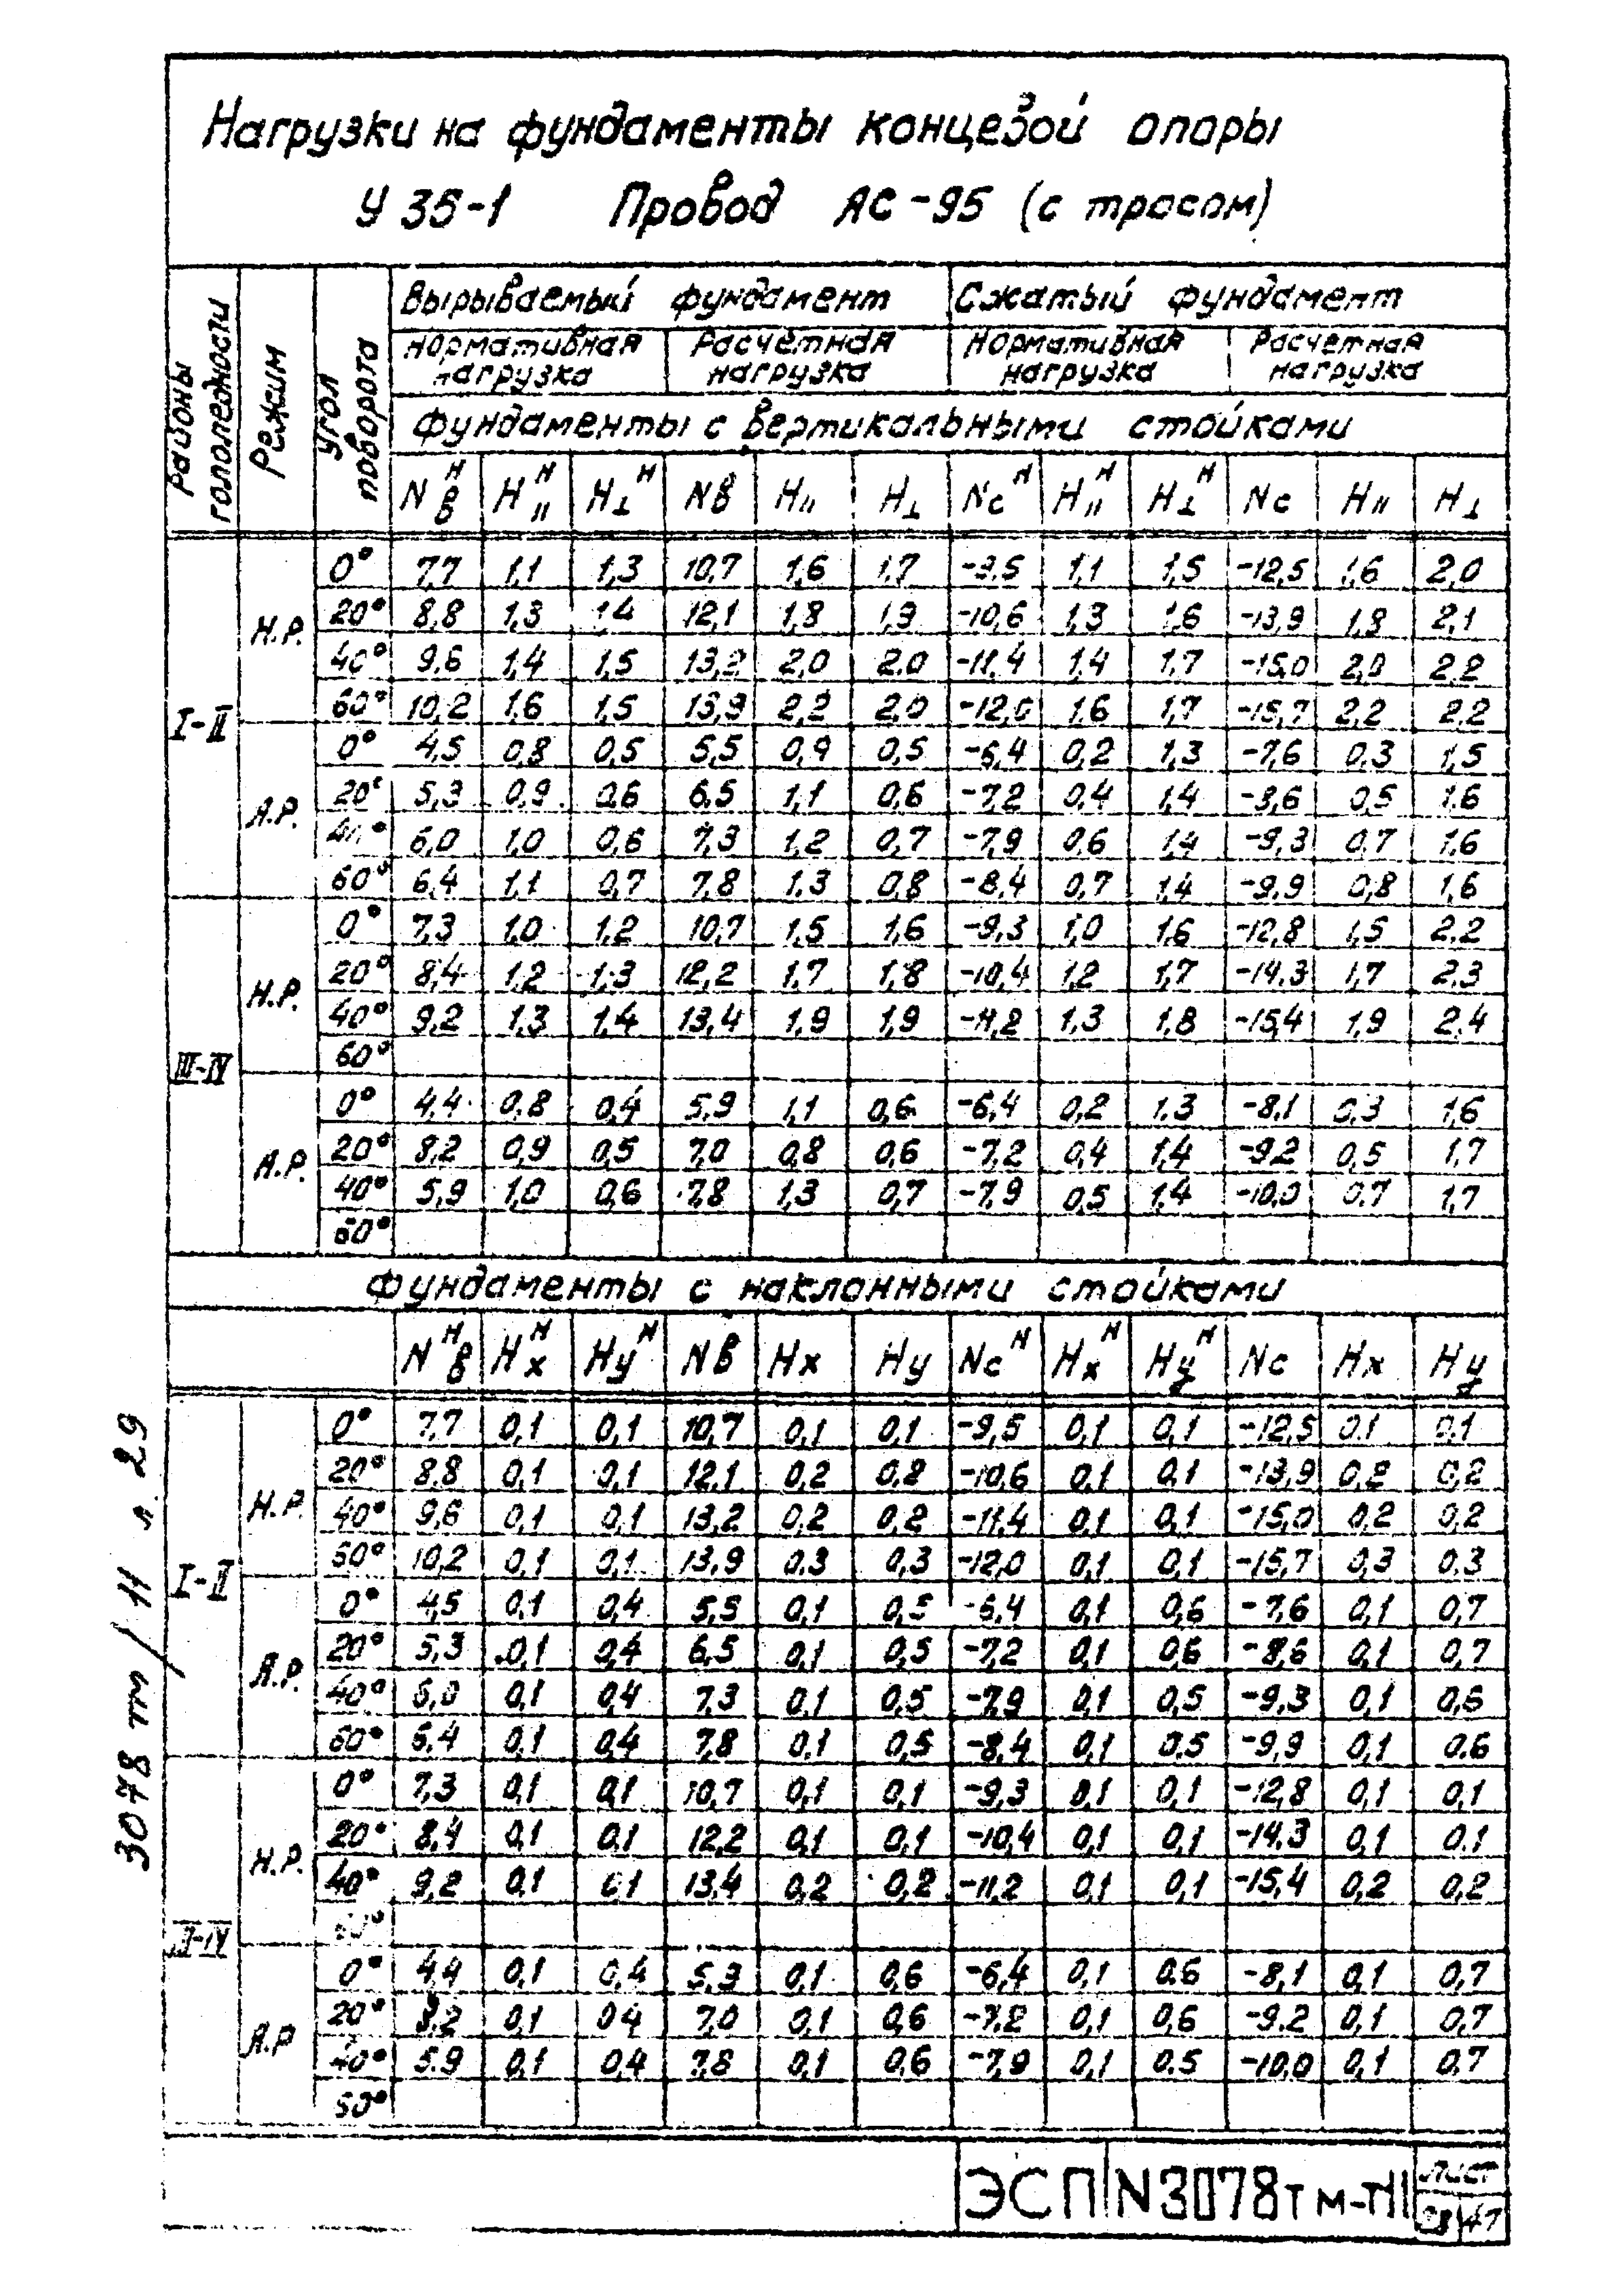 Нагрузки на фундаменты концевой опоры
У 35-1 Провод АС-95 (с тросом)
Районы гололедности Режим Угол поворота Вырываемый фундамент Сжатый фундамент
Нормативная нагрузка Расчетная нагрузка Нормативная нагрузка Расчетная нагрузка
Фундаменты с вертикальными стойками
Nвᴴ H||ᴴ H⊥ᴴ Nв H|| H⊥ Ncᴴ H||ᴴ H⊥ᴴ Nc H|| H⊥
I-II Н.Р. 0° 7,7 1,1 1,3 10,7 1,6 1,7 -9,5 1,1 1,5 -12,5 1,6 2,0
20° 8,8 1,3 1,4 12,1 1,8 1,9 -10,6 1,3 1,6 -13,9 1,8 2,1
40° 9,6 1,4 1,5 13,2 2,0 2,0 -11,4 1,4 1,7 -15,0 2,0 2,2
60° 10,2 1,6 1,5 13,9 2,2 2,0 -12,0 1,6 1,7 -15,7 2,2 2,2
А.Р. 0° 4,5 0,8 0,5 5,5 0,9 0,5 -6,4 0,2 1,3 -7,6 0,3 1,5
20° 5,3 0,9 0,6 6,5 1,1 0,6 -7,2 0,4 1,4 -8,6 0,5 1,6
40° 6,0 1,0 0,6 7,3 1,2 0,7 -7,9 0,6 1,4 -9,3 0,7 1,6
60° 6,4 1,1 0,7 7,8 1,3 0,8 -8,4 0,7 1,4 -9,9 0,8 1,6
III-IV Н.Р. 0° 7,3 1,0 1,2 10,7 1,5 1,6 -9,3 1,0 1,6 -12,8 1,5 2,2
20° 8,4 1,2 1,3 12,2 1,7 1,8 -10,4 1,2 1,7 -14,3 1,7 2,3
40° 9,2 1,3 1,4 13,4 1,9 1,9 -11,2 1,3 1,8 -15,4 1,9 2,4
60°
А.Р. 0° 4,4 0,8 0,4 5,9 1,1 0,6 -6,4 0,2 1,3 -8,1 0,3 1,6
20° 8,2 0,9 0,5 7,0 0,8 0,6 -7,2 0,4 1,4 -9,2 0,5 1,7
40° 5,9 1,0 0,6 7,8 1,3 0,7 -7,9 0,5 1,4 -10,0 0,7 1,7
60°
Фундаменты с наклонными стойками
Nвᴴ Hxᴴ Hуᴴ Nв Hx Hу Ncᴴ Hxᴴ Hуᴴ Nc Hx Hу
I-II Н.Р. 0° 7,7 0,1 0,1 10,7 0,1 0,1 -9,5 0,1 0,1 -12,5 0,1 0,1
20° 8,8 0,1 0,1 12,1 0,2 0,2 -10,6 0,1 0,1 -13,9 0,2 0,2
40° 9,6 0,1 0,1 13,2 0,2 0,2 -11,4 0,1 0,1 -15,0 0,2 0,2
60° 10,2 0,1 0,1 13,9 0,3 0,3 -12,0 0,1 0,1 -15,7 0,3 0,3
А.Р. 0° 4,5 0,1 0,4 5,5 0,1 0,5 -6,4 0,1 0,6 -7,6 0,1 0,7
20° 5,3 0,1 0,4 6,5 0,1 0,5 -7,2 0,1 0,6 -8,6 0,1 0,7
40° 6,0 0,1 0,4 7,3 0,1 0,5 -7,9 0,1 0,5 -9,3 0,1 0,6
60° 6,4 0,1 0,4 7,8 0,1 0,5 -8,4 0,1 0,5 -9,9 0,1 0,6
III-IV Н.Р. 0° 7,3 0,1 0,1 10,7 0,1 0,1 -9,3 0,1 0,1 -12,8 0,1 0,1
20° 8,4 0,1 0,1 12,2 0,1 0,1 -10,4 0,1 0,1 -14,3 0,1 0,1
40° 9,2 0,1 0,1 13,4 0,2 0,2 -11,2 0,1 0,1 -15,4 0,2 0,2
60°
А.Р. 0° 4,4 0,1 0,4 5,9 0,1 0,6 -6,4 0,1 0,6 -8,1 0,1 0,7
20° 8,2 0,1 0,4 7,0 0,1 0,6 -7,2 0,1 0,6 -9,2 0,1 0,7
40° 5,9 0,1 0,4 7,8 0,1 0,6 -7,9 0,1 0,5 -10,0 0,1 0,7
60°
3078 тм/11 л. 29
ЭСП N3078тм-т11 Лист
47